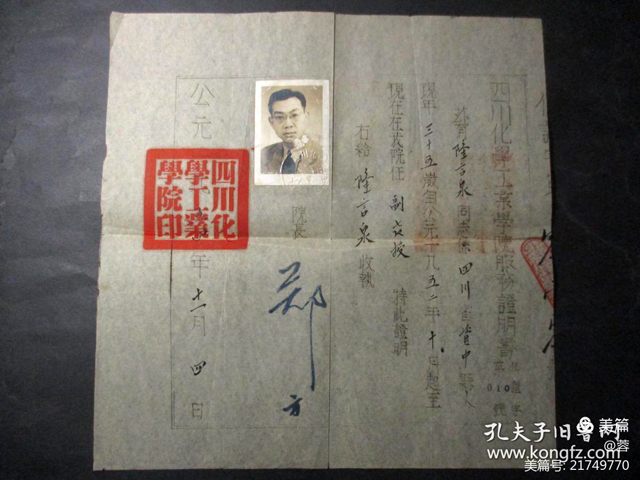 四川化學工業學院服務證明書
茲有隆言泉同志係四川省資中縣人
現年三十五歲自公元一九五二年十月起至
現在在我院任副教授 特此證明
右給 隆言泉 收執
院長 鄭 方
四川化
學工業
學院印
公元 年十一月四日
010
孔夫子旧书网
www.kongfz.com
美篇
@蓉
美篇号: 21749770